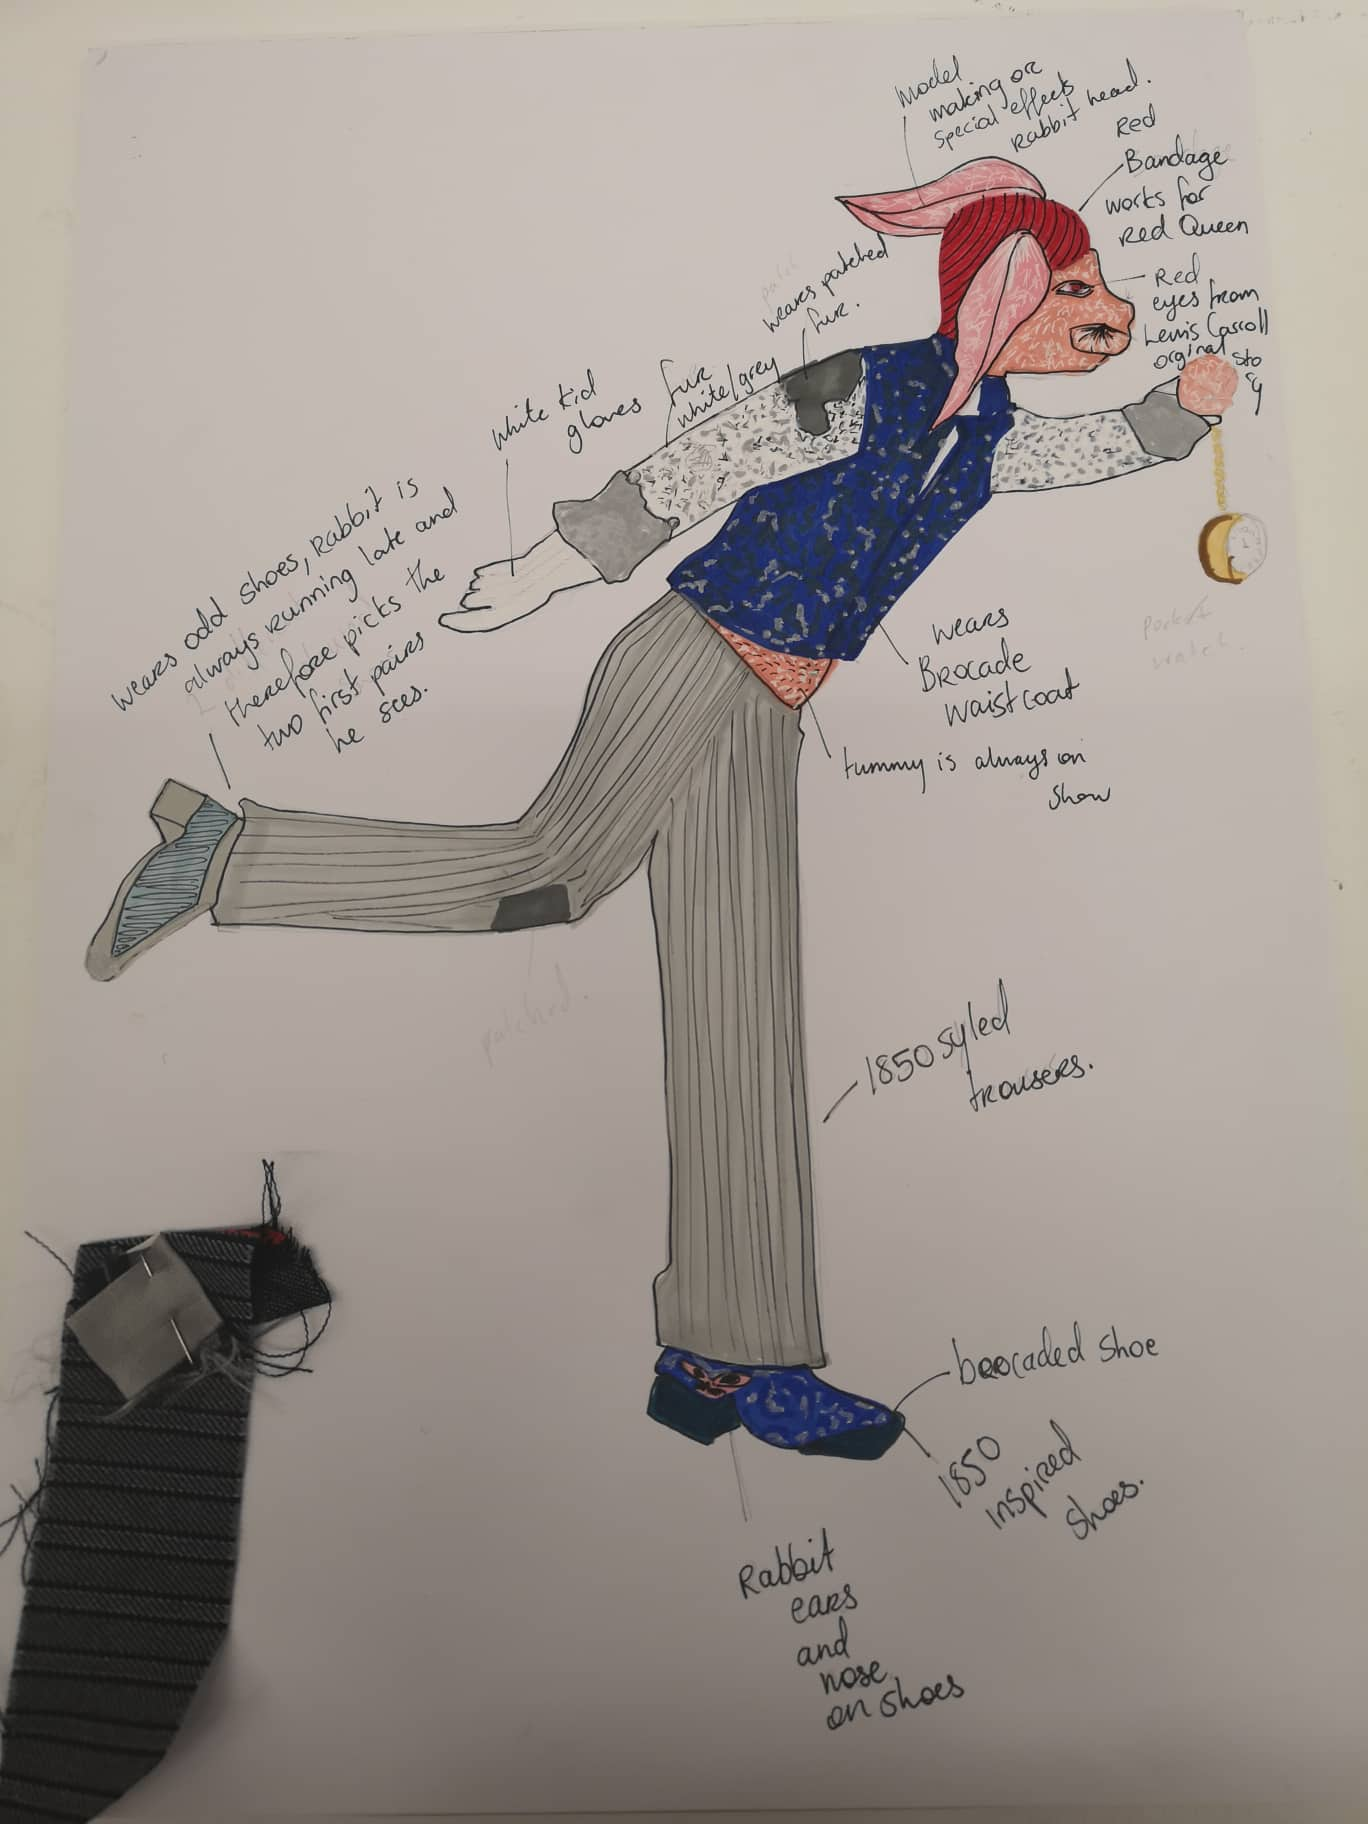 Model
making or
special effects
rabbit head.
Red
Bandage
works for
red Queen
Red
eyes from
Lewis Carroll
orginal sto
ry
patch
wears patched
fur.
fur
white/grey
white kid
gloves
wears odd shoes, rabbit is
always running late and
therefore picks the
two first pairs
he sees.
pocket
watch.
wears
Brocade
waistcoat
tummy is always on
show
patched.
1850 syled
trousers.
brocaded shoe
1850
inspired
shoes.
Rabbit
ears
and
nose
on shoes